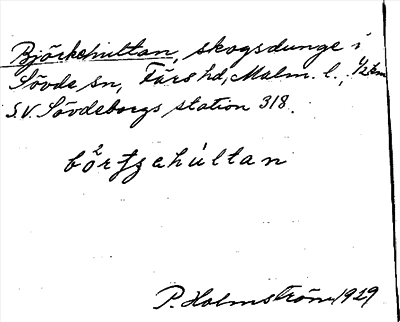 Björkehultan, skogsdunge i
Sövde sn, Färs hd, Malm. l., 1/2 km
S.V. Sövdeborgs station 318.
bö2rtzehultan
P. Holmström 1929